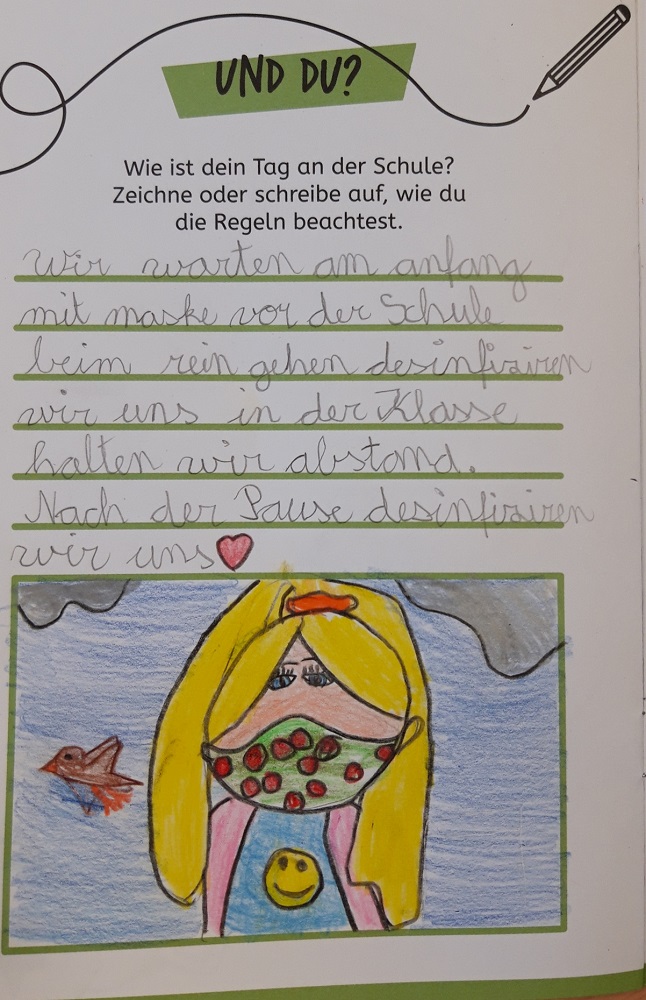 UND DU?
Wie ist dein Tag an der Schule?
Zeichne oder schreibe auf, wie du
die Regeln beachtest.
Wir warten am anfang
mit maske vor der Schule
beim rein gehen desinfiziren
wir uns in der Klasse
halten wir abstand.
Nach der Pause desinfiziren
wir uns